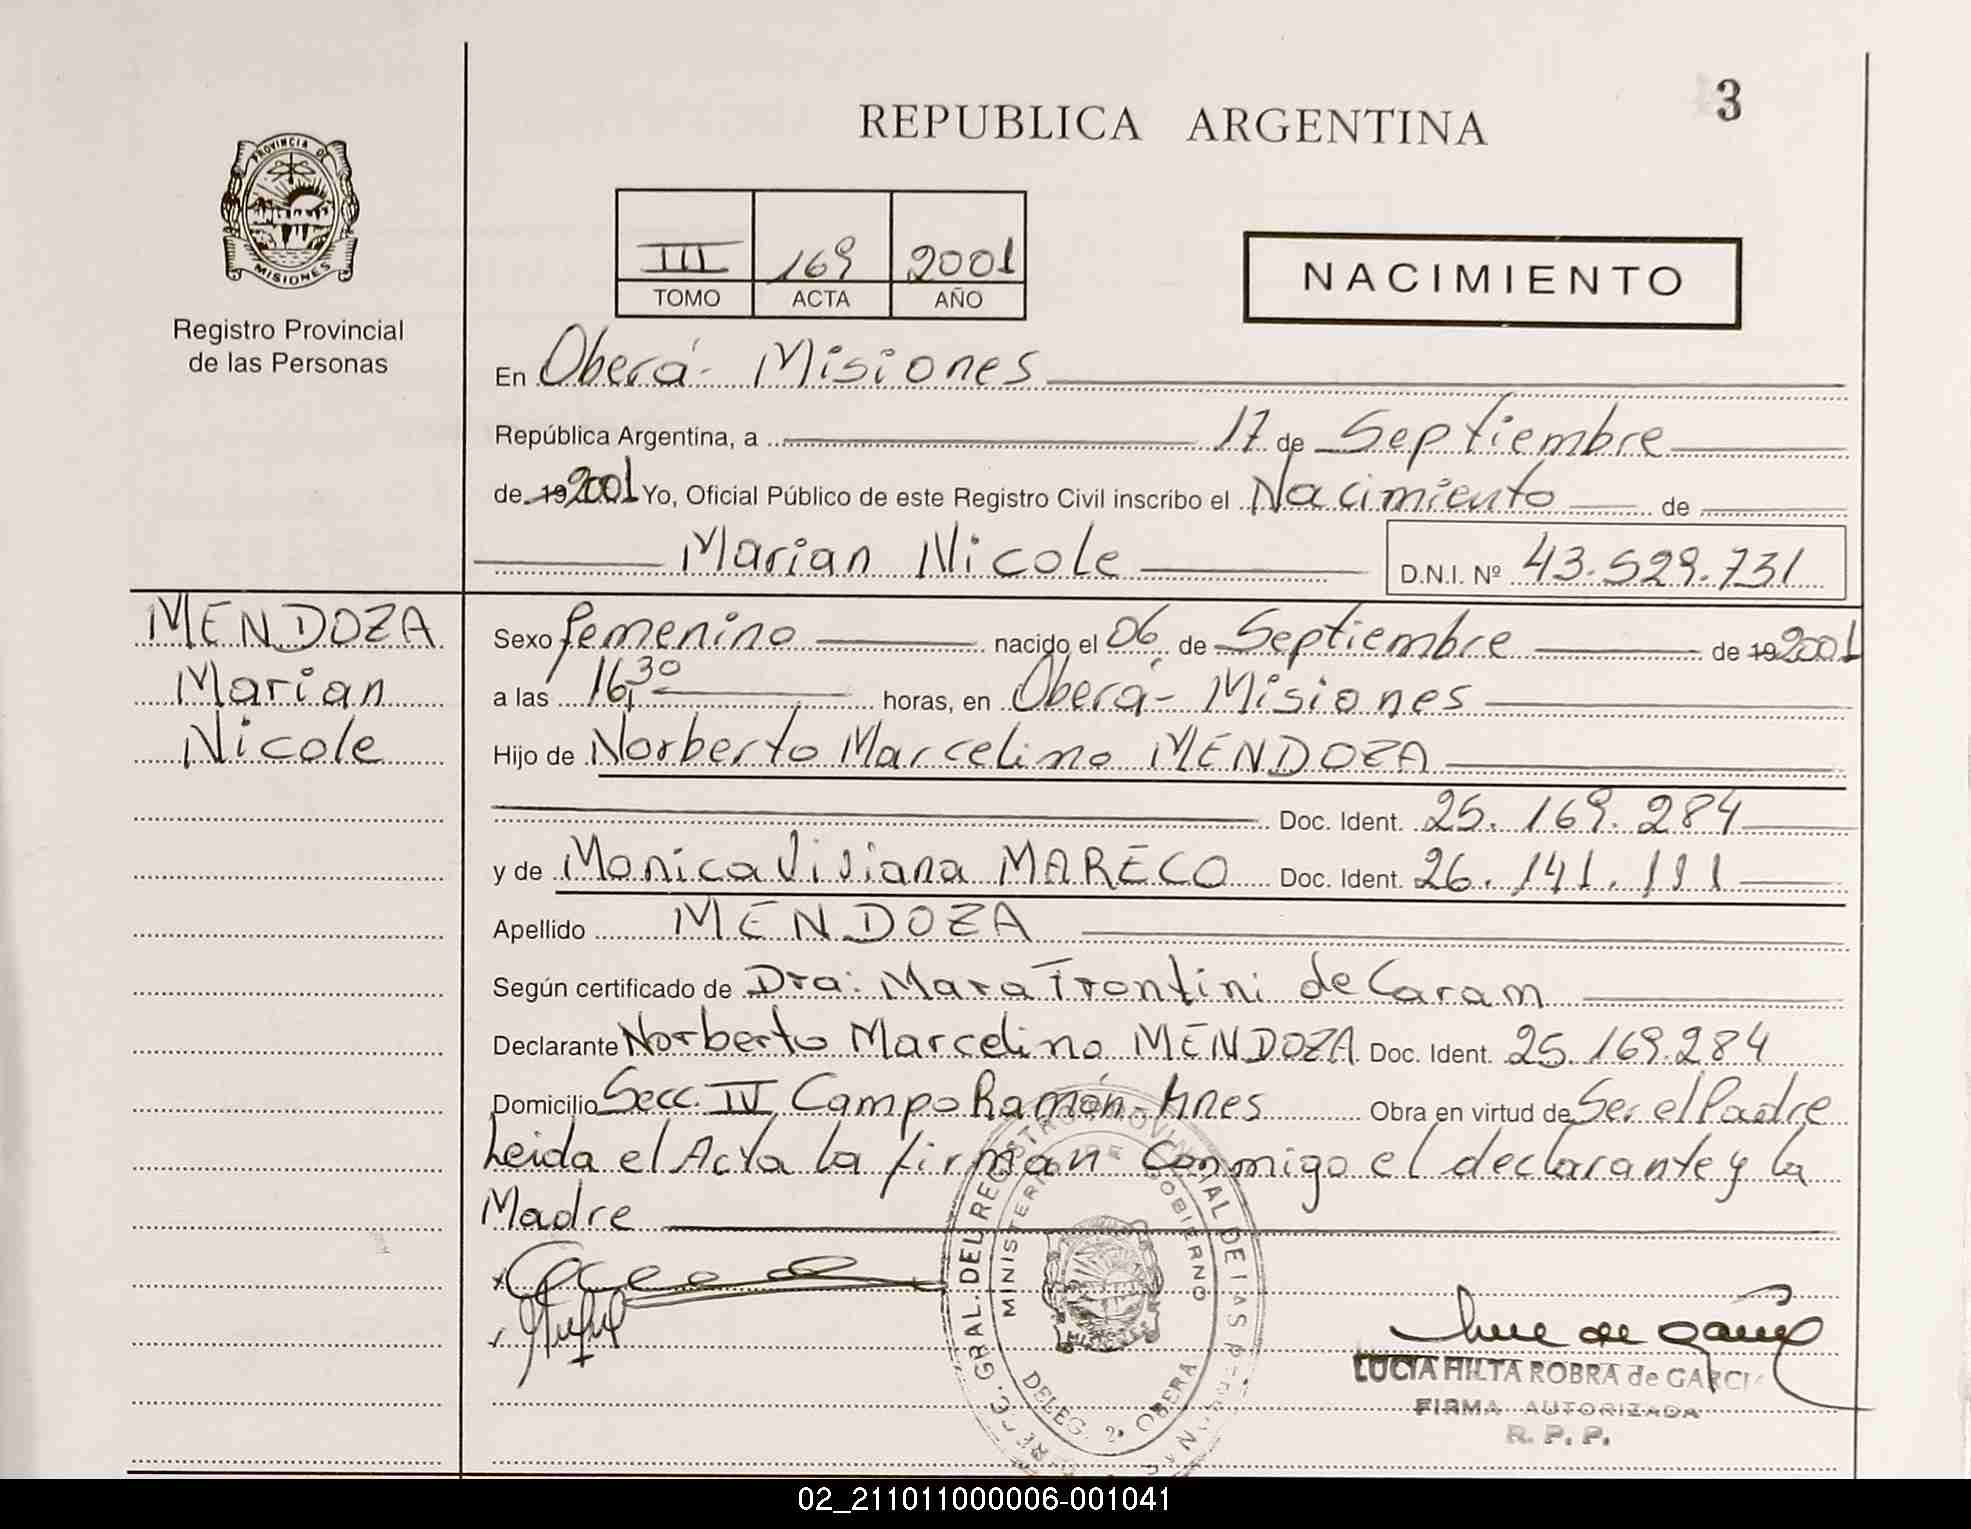 3
REPUBLICA ARGENTINA
PROVINCIA DE
MISIONES
Registro Provincial
de las Personas
III 169 2001
TOMO ACTA AÑO
NACIMIENTO
En Oberá - Misiones
República Argentina, a 17 de Septiembre
de 19 2001 Yo, Oficial Público de este Registro Civil inscribo el Nacimiento de
Marian Nicole D.N.I. Nº 43.529.731
MENDOZA
Marian
Nicole
Sexo femenino nacido el 06 de Septiembre de 19 2001
a las 16,30 horas, en Oberá - Misiones
Hijo de Norberto Marcelino MENDOZA
Doc. Ident. 25.169.284
y de Monica Viviana MARECO Doc. Ident. 26.141.111
Apellido MENDOZA
Según certificado de Dra: Mara Trontini de Caram
Declarante Norberto Marcelino MENDOZA Doc. Ident. 25.169.284
Domicilio Secc. IV Campo Ramón - Mnes Obra en virtud de Ser el Padre
Leida el Acta la firman Conmigo el declarante y la
Madre
GRAL. DEL REGISTRO PROVINCIAL DE LAS
MINISTERIO DE GOBIERNO
MISIONES
DELEG. 2ª OBERA
LUCIA HILTA ROBRA de GARCIA
FIRMA AUTORIZADA
R. P. P.
02_211011000006-001041